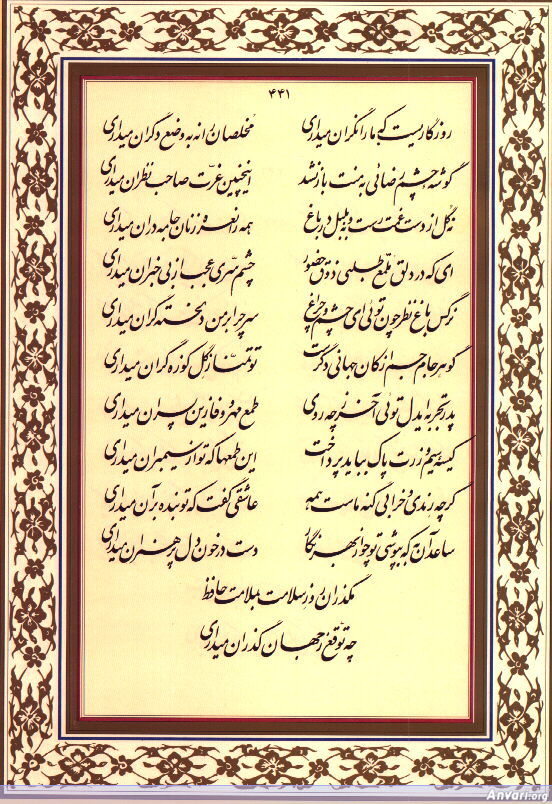 ۴۴۱
روزگاریست که ما را نگران میداری مخلصان را نه به وضع دگران میداری
گوشه چشم رضائی به منت باز نشد اینچنین عزت صاحب نظران میداری
نه گل از دست غمت رست و نه بلبل در باغ همه را نعره زنان جامه دران میداری
ای که در دلق ملمع طلبی ذوق حضور چشم سری عجب از بی خبران میداری
نرگس باغ نظر چون توئی ای چشم و چراغ سر چرا بر من دلخسته گران میداری
گوهر جام جم از کان جهانی دگرست تو تمنا ز گل کوزه گران میداری
پدر تجربه ایدل توئی آخر ز چه روی طمع مهر و وفا زین پسران میداری
کیسه سیم و زرت پاک بباید پرداخت این طمعها که تو از سیمبران میداری
گرچه رندی و خرابی گنه ماست همه عاشقی گفت که تو بنده بر آن میداری
ساعد آن به که بپوشی تو چو از بهر نگار دست در خون دل پر هنران میداری
مگذران روز سلامت بملامت حافظ
چه توقع ز جهان گذران میداری
Anvari.org